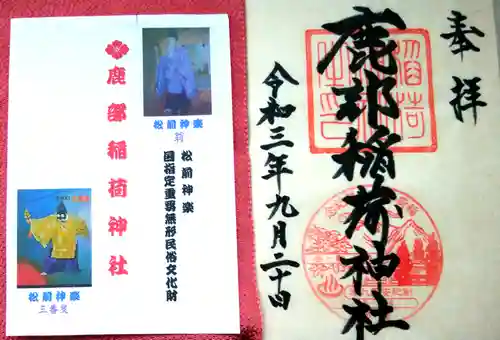 奉拝
鹿部稲荷神社
令和三年九月二十日
松前神楽
翁
松前神楽
国指定重要無形民俗文化財
鹿部稲荷神社
松前神楽
三番叟